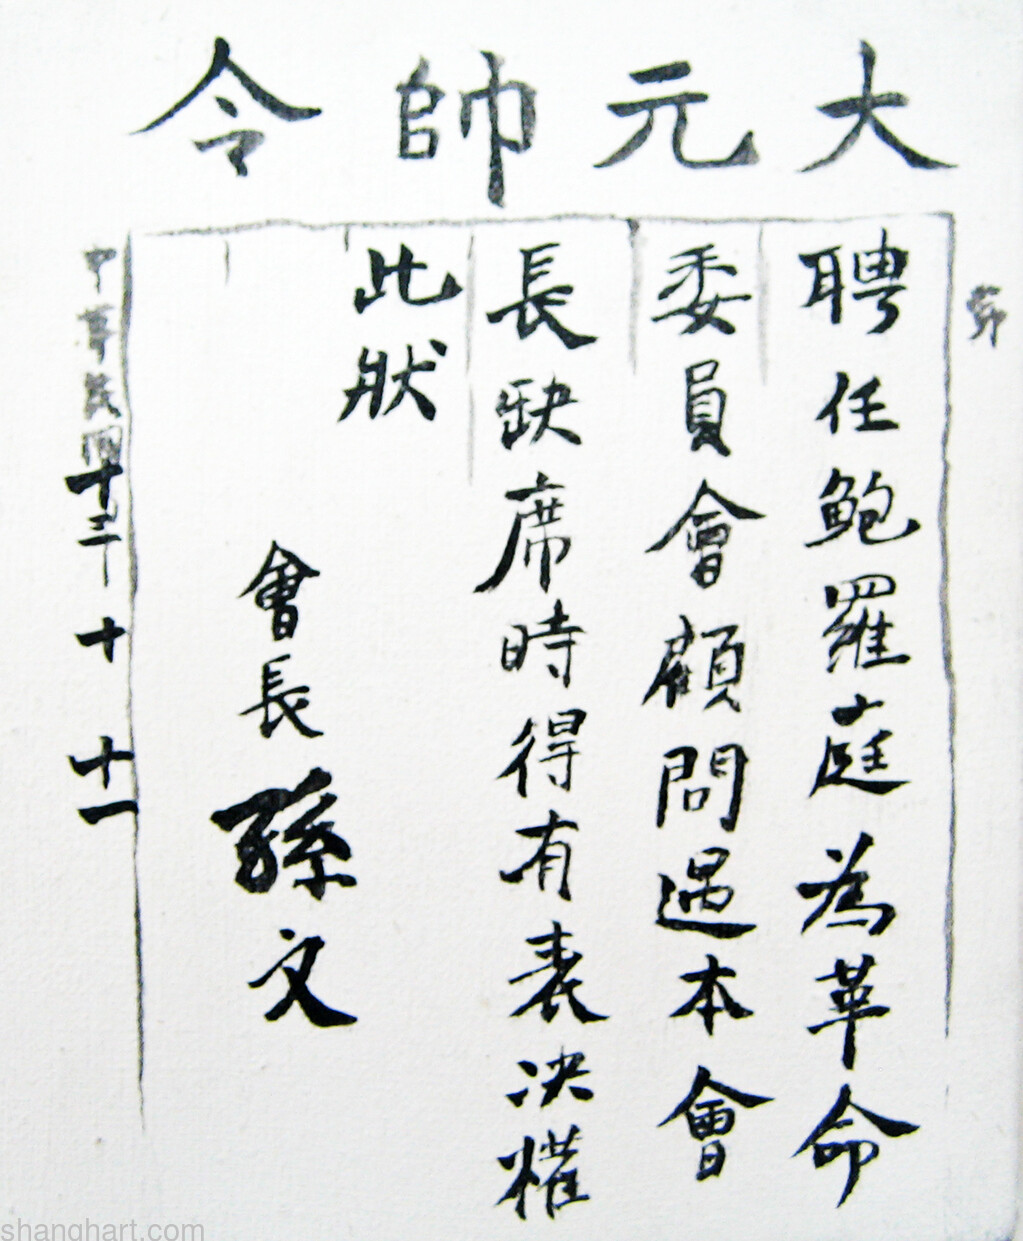 大元帥令
聘任鮑羅庭為革命
委員會顧問遇本會
長缺席時得有表决權
此狀
會長 孫文
中華民國十三 十 十一
shanghart.com